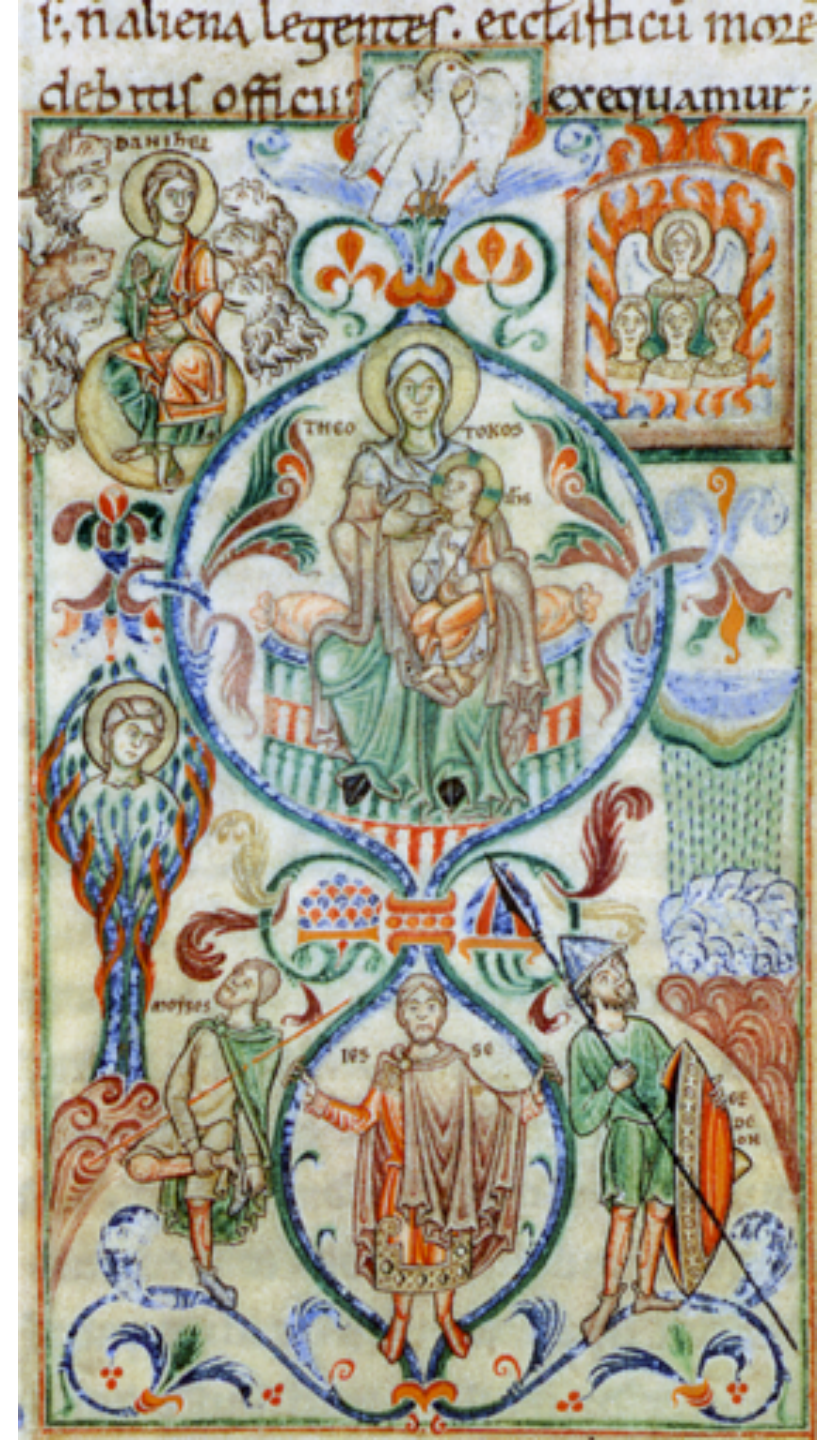 n aliena legentes. eccłasticū more
debitis officiis exequamur;
DANIHEL
THEO TOKOS
MOYSES
IES SE
GE
DE
ON